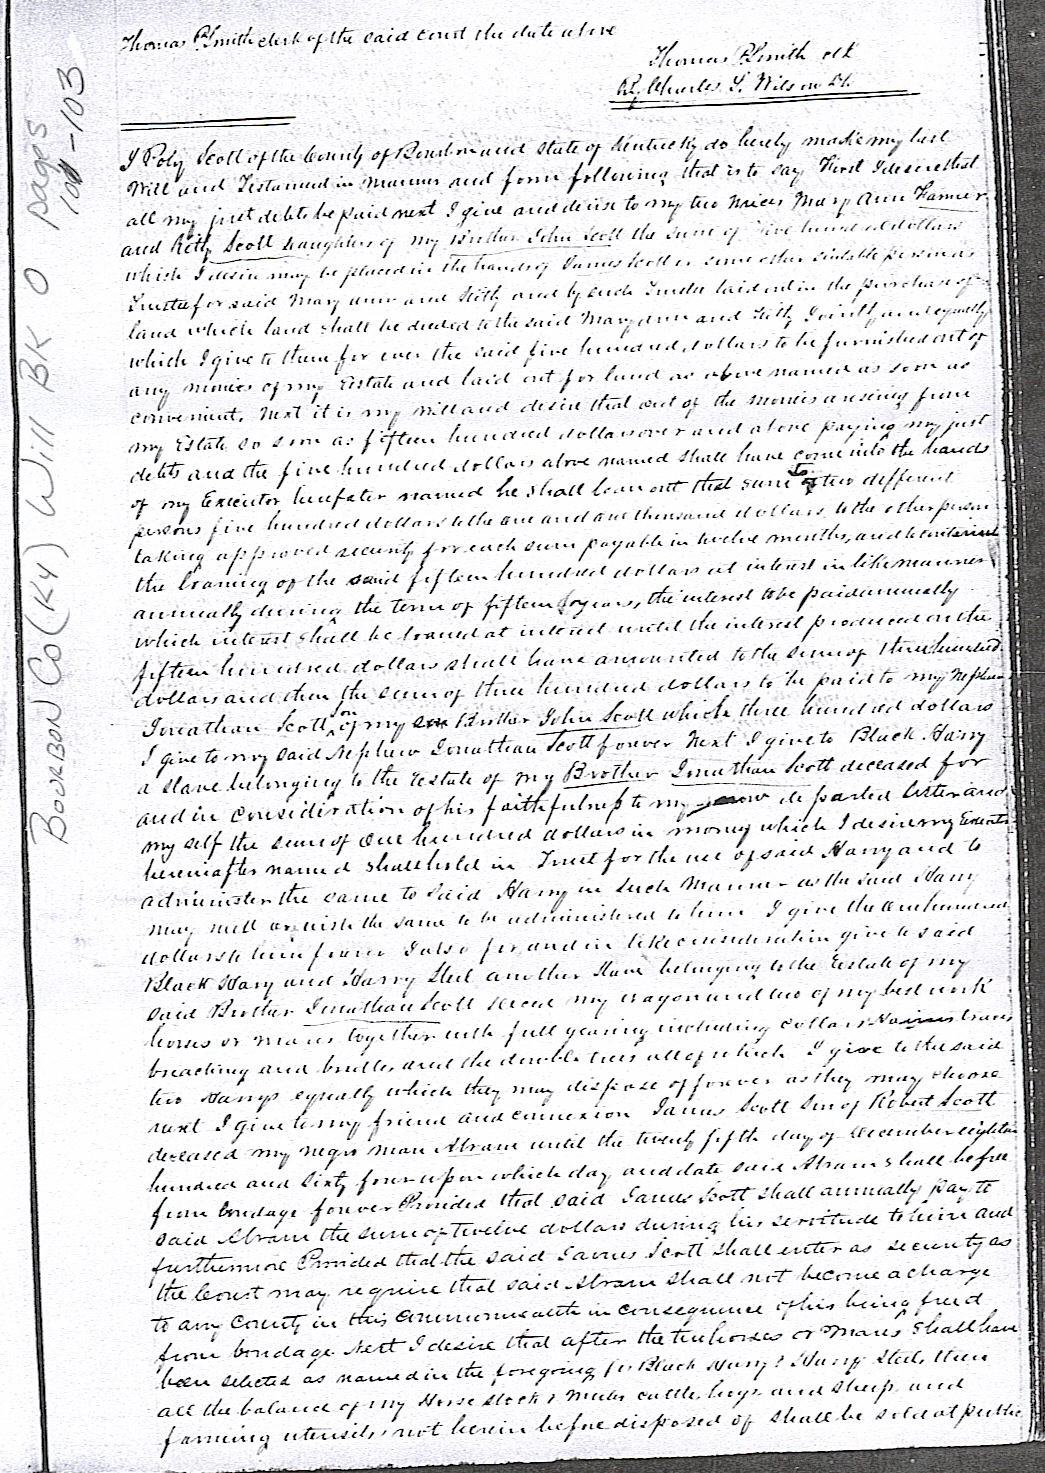 BOURBON CO (KY) Will BK O pages
-103
Thomas P. Smith clerk of the said court the date above
Thomas P. Smith clk
By Charles S. Wilson
I Poly Scott of the County of Bourbon and State of Kentucky do hereby make my last
Will and Testament in manner and form following that is to say First I desire that
all my just debts be paid next I give and devise to my two Nieces Mary Ann
and Kitty Scott Daughters of my Brother John Scott the sum of five hundred dollars
which I desire may be placed in the hands of James Scott or some other suitable person as
Trustee for said Mary ann and Kitty and by such Trustee laid out in the purchase of
land which land shall be deeded to the said Mary ann and Kitty Jointly and equally
which I give to them for ever the said five hundred dollars to be furnished out of
any monies of my Estate and laid out for land as above named as soon as
convenient. Next it is my will and desire that out of the monies arising from
my Estate so soon as fifteen hundred dollars over and above paying my just
debts and the five hundred dollars above named shall have come into the hands
of my Executor hereafter named he shall loan out that sum to two different
persons five hundred dollars to the one and one thousand dollars to the other person
taking approved security for each sum payable in twelve months, and to continue
the loaning of the said fifteen hundred dollars at interest in like manner
annually during the term of fifteen years, the interest to be paid annually
which interest shall be loaned at interest until the interest produced on the
fifteen hundred dollars shall have amounted to the sum of three hundred
dollars and then the sum of three hundred dollars to be paid to my Nephew
Jonathan Scott son of my Brother John Scott which three hundred dollars
I give to my said Nephew Jonathan Scott forever Next I give to Black Harry
a slave belonging to the Estate of my Brother Jonathan Scott deceased for
and in consideration of his faithfulness to my departed Sister and
my self the sum of One hundred dollars in money which I desire my Executor
hereinafter named shall hold in Trust for the use of said Harry and to
administer the same to said Harry in such Manner as the said Harry
may will or wish the same to be administered to him I give the one hundred
dollars to him forever I also for and in like consideration give to said
Black Harry and Harry Sled another slave belonging to the Estate of my
said Brother Jonathan Scott deced my wagon and two of my best work
horses or mares together with full gearing including collars Haims traces
breaching and bridles and the double trees all of which I give to the said
two Harrys equally which they may dispose of forever as they may choose
next I give to my friend and connexion James Scott Son of Robert Scott
deceased my negro man Abram until the twenty fifth day of December eighteen
hundred and sixty four upon which day and date said Abram shall be free
from bondage forever Provided that said James Scott shall annually pay to
said Abram the sum of twelve dollars during his servitude to him and
furthermore Provided that the said James Scott shall enter as security as
the Court may require that said Abram shall not become a charge
to any County in this Commonwealth in consequence of his being freed
from bondage Next I desire that after the two horses or mares shall have
been selected as named in the foregoing for Black Harry & Harry Sled, then
all the balance of my Horse stock & Mules cattle, hogs and sheep and
farming utensils, not herein before disposed of shall be sold at public